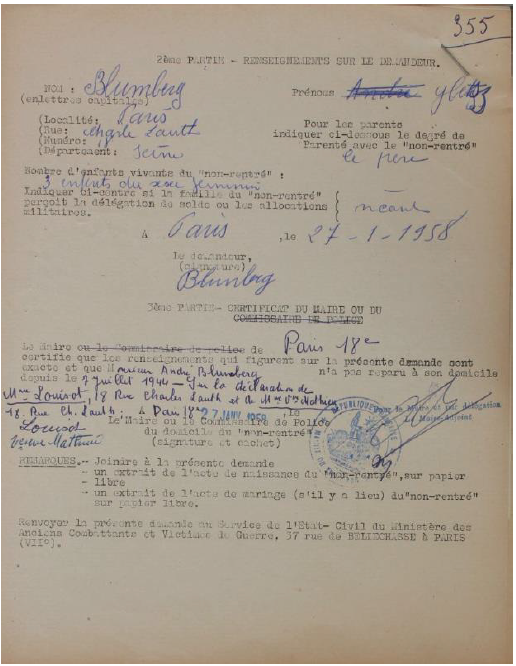 355
2ème PARTIE - RENSEIGNEMENTS SUR LE DEMANDEUR.
NOM : Blumberg Prénoms André
(en lettres capitales)
(Localité: Paris
(Rue: Charle Lauth
(Numéro:
(Département: Seine
Pour les parents
indiquer ci-dessous le degré de
Parenté avec le "non-rentré"
le père
Nombre d'enfants vivants du "non-rentré" :
3 enfants du sexe feminin
Indiquer ci-contre si la famille du "non-rentré"
perçoit la délégation de solde ou les allocations
militaires.
néant
A Paris , le 27-1-1958
Le demandeur,
(signature)
Blumberg
3ème PARTIE- CERTIFICAT DU MAIRE OU DU
COMMISSAIRE DE POLICE
Le Maire ou le Commissaire de police de Paris 18e
certifie que les renseignements qui figurent sur la présente demande sont
exacts et que Monsieur André Blumberg n'a pas reparu à son domicile
depuis le 2 juillet 1944 - Sur la déclaration de
Mme Louisot, 18 Rue Charles Lauth et de Mme Vve Mathieu
18 Rue Ch. Lauth. A Paris 18e le 27 JANV 1958
Le Maire ou le Commissaire de Police
du domicile du "non-rentré"
(signature et cachet)
Pour le Maire et par délégation
Maire-Adjoint
Louisot
veuve Mathieu
REMARQUES.- Joindre à la présente demande
- un extrait de l'acte de naissance du "non-rentré", sur papier
- libre
- un extrait de l'acte de mariage (s'il y a lieu) du "non-rentré"
sur papier libre.
Renvoyer la présente demande au Service de l'Etat-Civil du Ministère des
Anciens Combattants et Victimes de Guerre, 37 rue de BELLECHASSE à PARIS
(VII°).